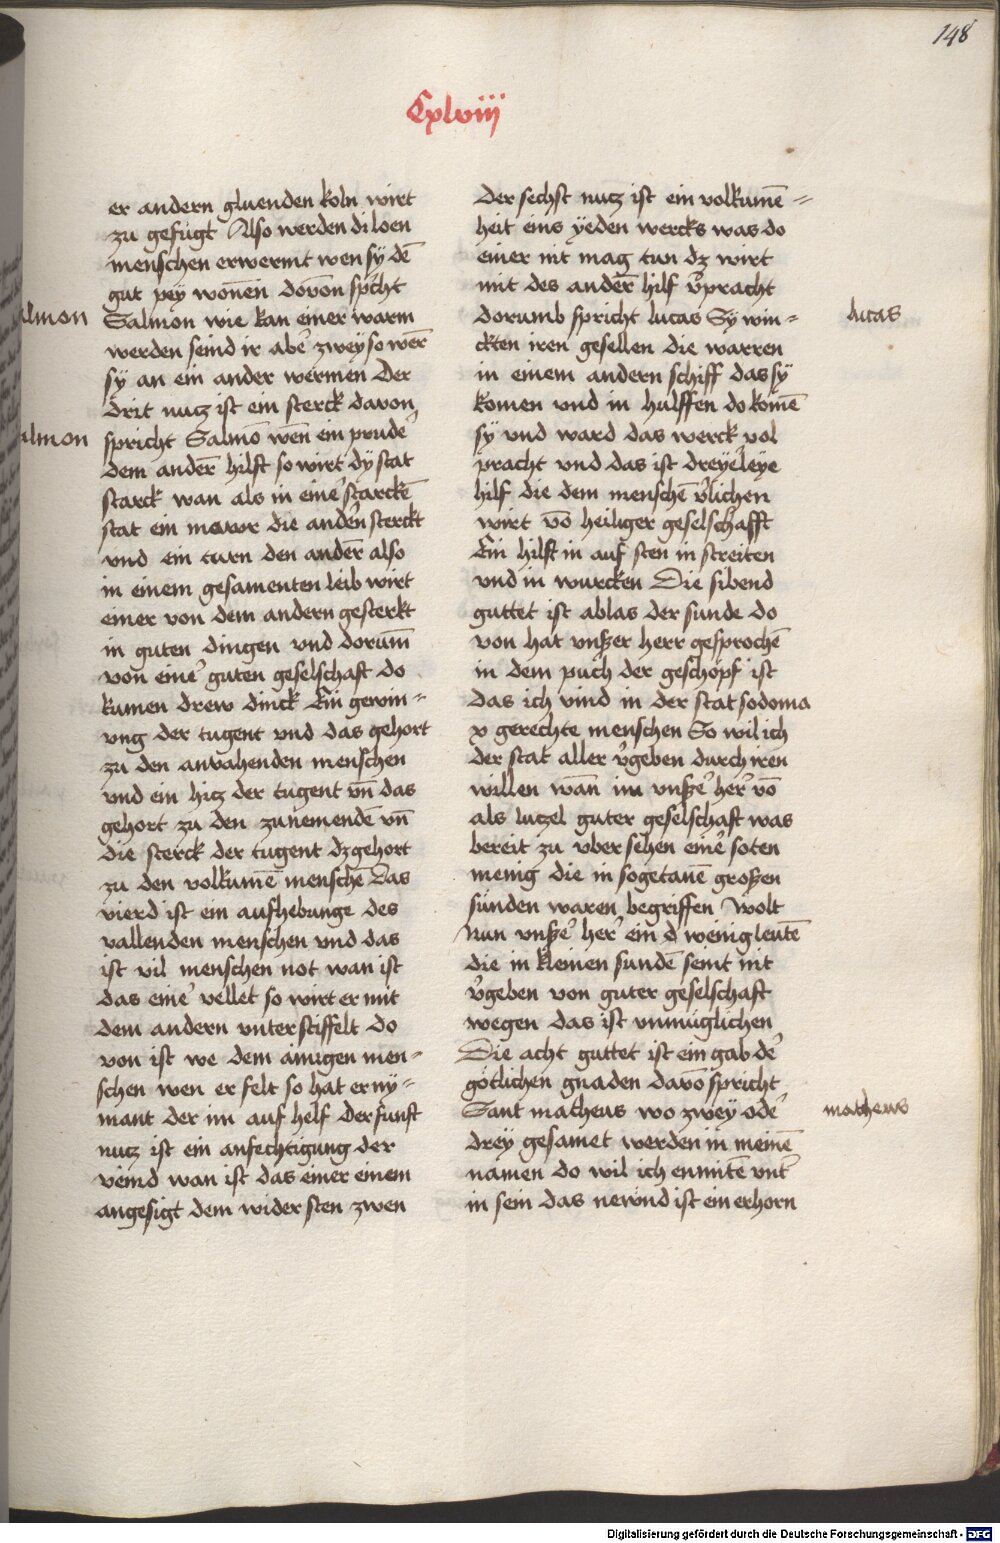 148
Cxlviii
er andern gluenden koln wirt
zu gefugt Also werden di loen
menschen erwermt wen sy dē
gut pey wonen dovon spcht
Salmon wie kan einer warm
werden seind ir abe᾿ zwey so wer̄
sy an ein ander wermen Der
drit nucz ist ein sterck davon
spricht Salmō wen̄ ein prude᾿
dem ander̄ hilft so wirt dy stat
starck wan als in eine᾿ starckē
stat ein mawr die anden sterckt
vnd ein turn den ander̄ also
in einem gesamenten leib wirt
einer von dem andern gesterkt
in guten dingen vnd dorum̄
von eine᾿ guten geselschaft do
kumen drew dinck Ein gewin=
vng der tugent vnd das gehort
zu den anvahenden menschen
vnd ein hicz der tugent vn̄ das
gehort zu den zunemendē vn̄
die sterck der tugent dz gehort
zu den volkumē menschē Das
vierd ist ein aufhebunge des
vallenden menschen vnd das
ist vil menschen not wan ist
das eine᾿ vellet so wirt er mit
dem andern vnter stiffelt do
von ist we dem ainigen men=
schen wen er felt so hat er ny=
mant der im auf helf Der funft
nucz ist ein anfechtigung der
veind wan ist das einer einem
angesigt dem wider sten zwen
Salmon
Salmon
Der sechst nucz ist ein volkumē=
heit eins yeden wercks was do
einer nit mag tun dz wirt
mit des ander̄ hilf v᾿pracht
dorumb spricht lucas Sy win=
ckten iren gesellen die warren
in einem andern schiff das sy
komen vnd in hulffen do komē
sy vnd ward das werck vol
pracht vnd das ist dreyeleye
hilf die dem menschē v᾿lichen
wirt vō heiliger geselschafft
Ein hilft in auf sten in streiten
vnd in wurcken Die sibend
guttet ist ablas der sunde do
von hat vnßer herr gesprochē
in dem puch der geschopf ist
das ich vind in der stat sodoma
x gerechte menschen So wil ich
der stat aller v᾿geben durch iren
willen wan̄ im vnße᾿ her᾿ vō
als luczel guter geselschaft was
bereit zu vber sehen eine᾿ soten
menig die in sogetanē großen
sunden waren begriffen Wolt
Nun vnße᾿ her᾿ ein d wenig leutē
die in kleinen sundē seint nit
v᾿geben von guter geselschaft
wegen das ist vnmuglichen
Die acht guttet ist ein gab de᾿
gotlichen gnaden davō spricht
Sant matheus wo zwey ode᾿
drey gesamet werden in meinē
namen do wil ich enmitē vnt᾿
in sein das newnd ist ein erhorn
lucas
matheus
Digitalisierung gefördert durch die Deutsche Forschungsgemeinschaft - DFG